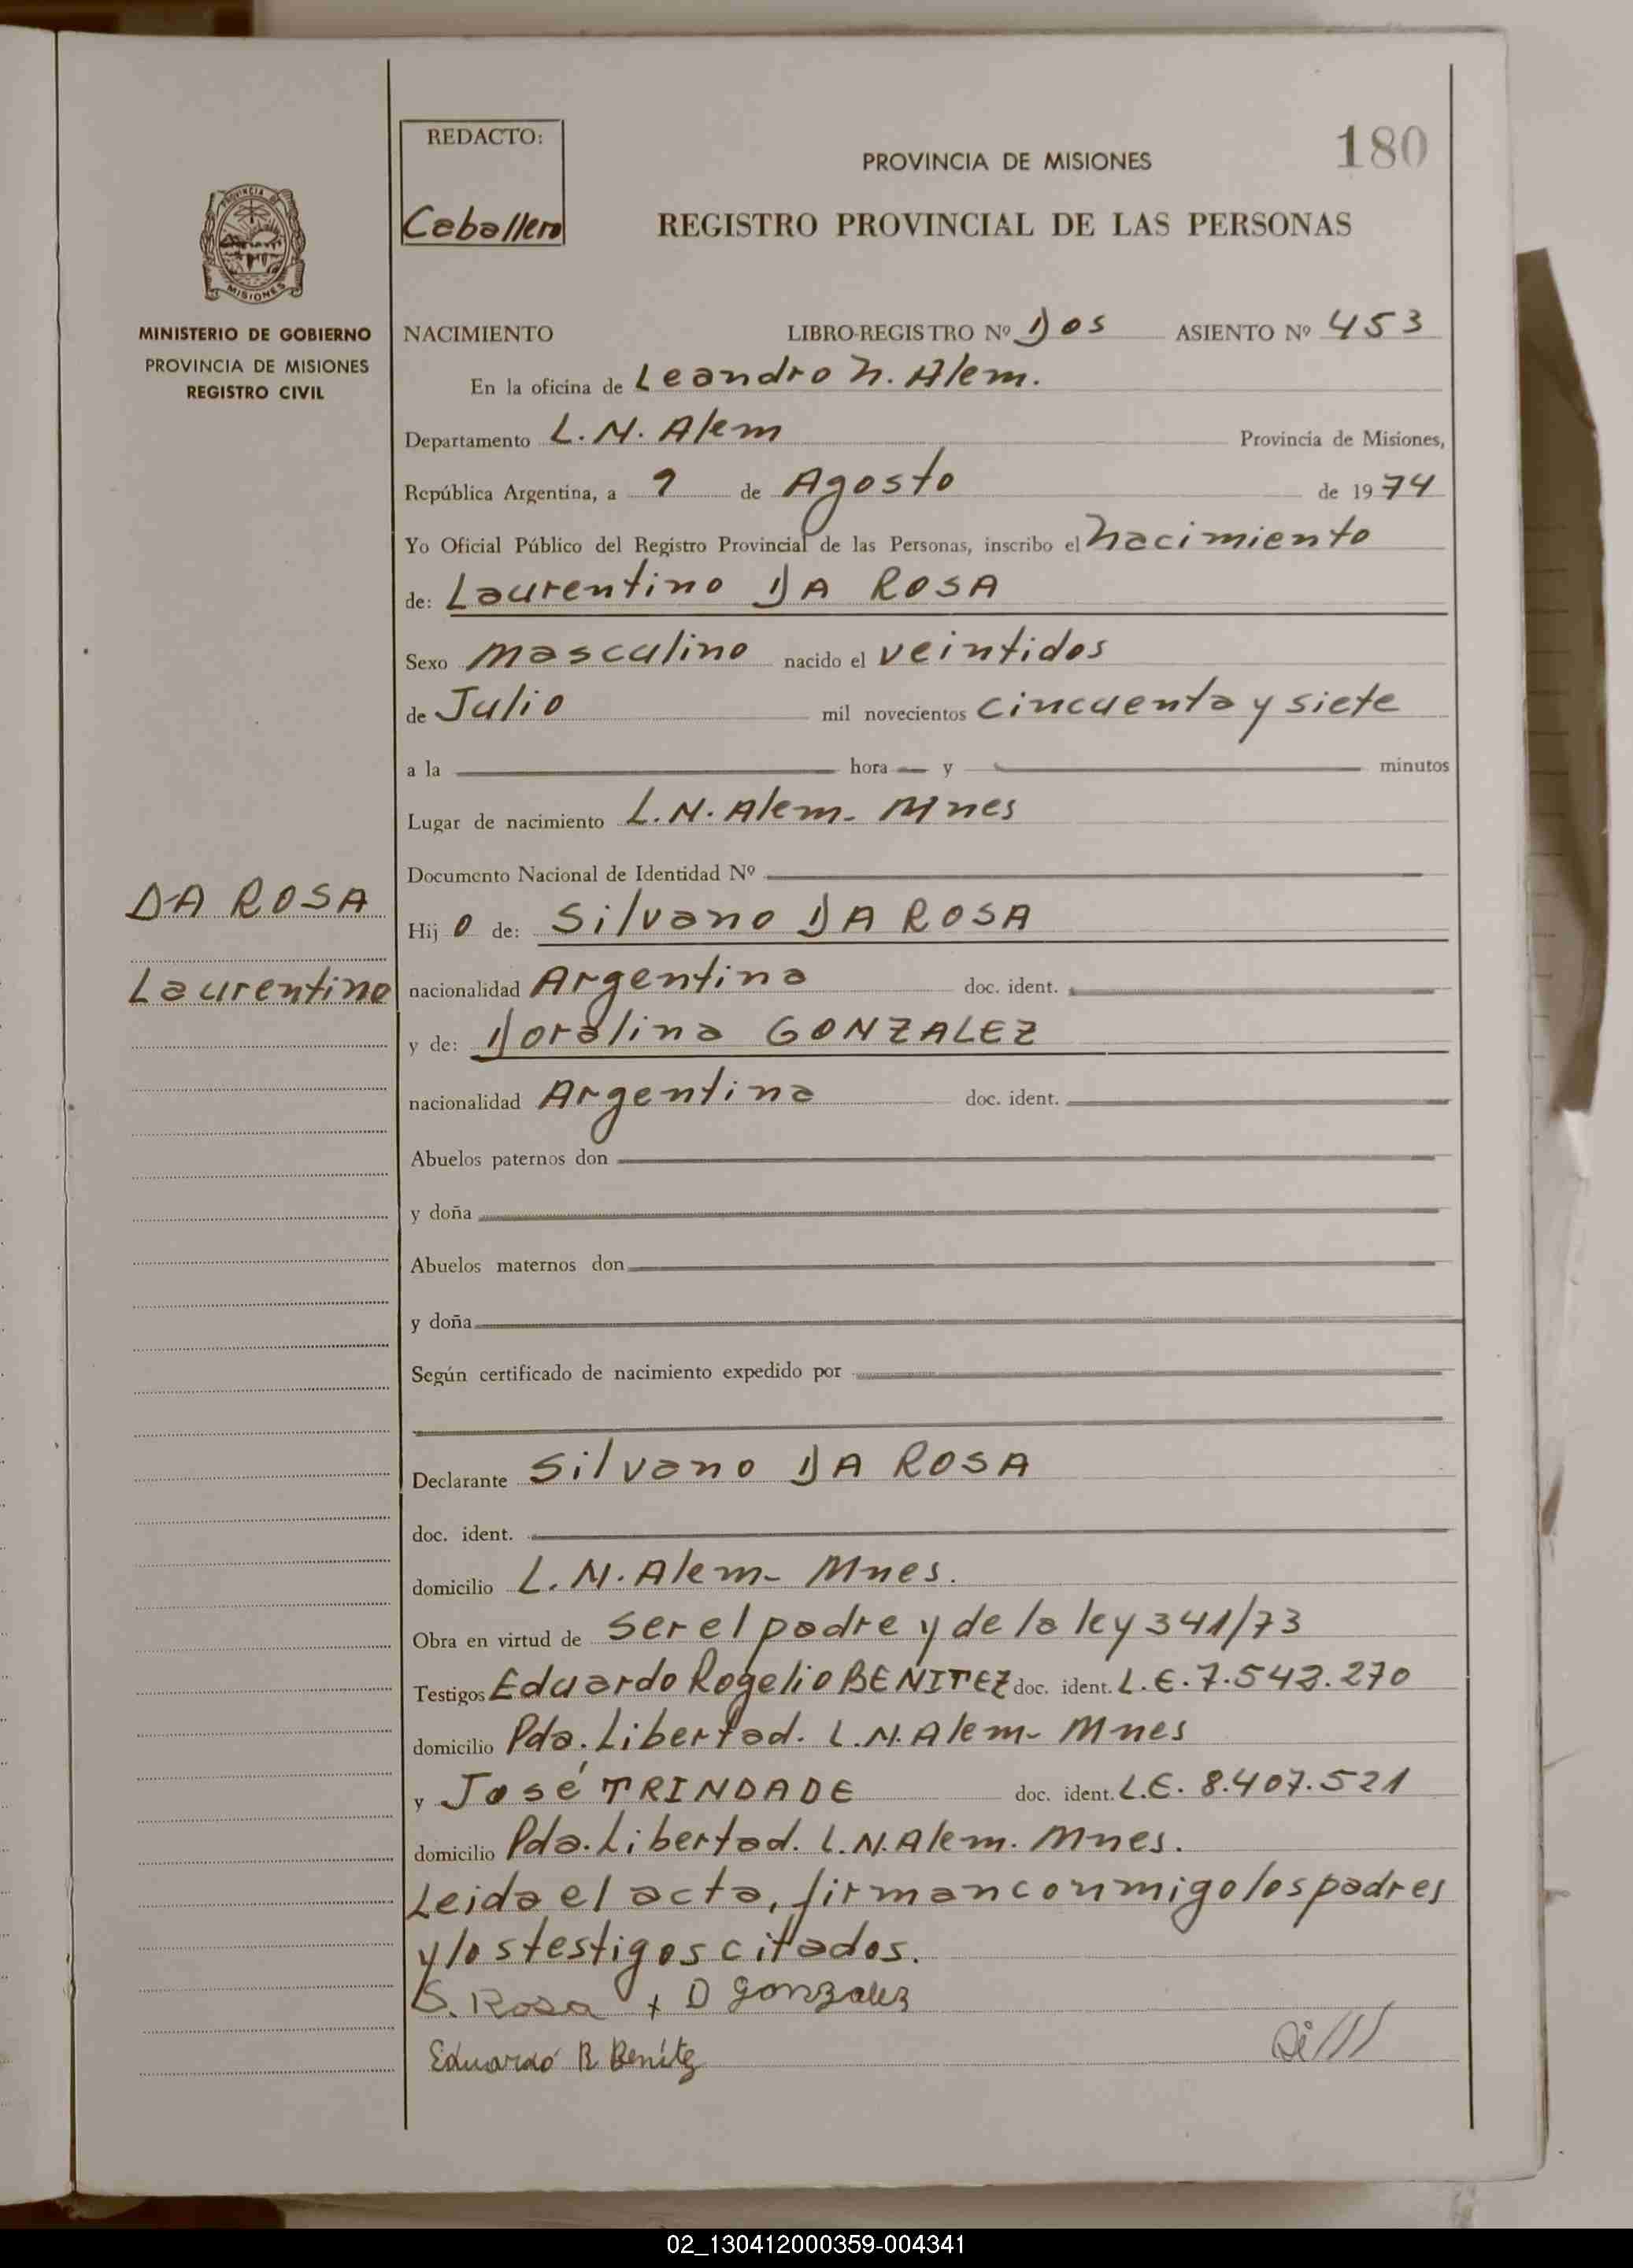 180
REDACTO:
Caballero
PROVINCIA DE MISIONES
REGISTRO PROVINCIAL DE LAS PERSONAS
PROVINCIA DE
MISIONES
MINISTERIO DE GOBIERNO
PROVINCIA DE MISIONES
REGISTRO CIVIL
NACIMIENTO LIBRO-REGISTRO Nº Dos ASIENTO Nº 453
En la oficina de Leandro N. Alem.
Departamento L. N. Alem Provincia de Misiones,
República Argentina, a 9 de Agosto de 1974
Yo Oficial Público del Registro Provincial de las Personas, inscribo el nacimiento
de: Laurentino DA ROSA
Sexo masculino nacido el veintidos
de Julio mil novecientos cincuenta y siete
a la hora y minutos
Lugar de nacimiento L. N. Alem - Mnes
Documento Nacional de Identidad Nº
DA ROSA
Laurentino
Hijo de: Silvano DA ROSA
nacionalidad Argentina doc. ident.
y de: Doralina GONZALEZ
nacionalidad Argentina doc. ident.
Abuelos paternos don
y doña
Abuelos maternos don
y doña
Según certificado de nacimiento expedido por
Declarante Silvano DA ROSA
doc. ident.
domicilio L. N. Alem - Mnes.
Obra en virtud de ser el padre y de la ley 341/73
Testigos Eduardo Rogelio BENITEZ doc. ident. L.E. 7.543.270
domicilio Pda. Libertad. L.N. Alem - Mnes
y José TRINDADE doc. ident. L.E. 8.407.521
domicilio Pda. Libertad. L.N. Alem. Mnes.
Leida el acta, firman conmigo los padres
y los testigos citados.
S. Rosa + D Gonzalez
Eduardo R Benítez
02_130412000359-004341